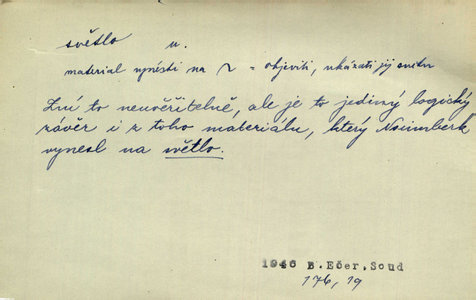 světlo n.
material vynésti na ~ = objeviti, ukázati jej světu
Zní to neuvěřitelně, ale je to jediný logický
závěr i z toho materiálu, který Norimberk
vynesl na světlo.
1946 B.Ečer, Soud
176, 19